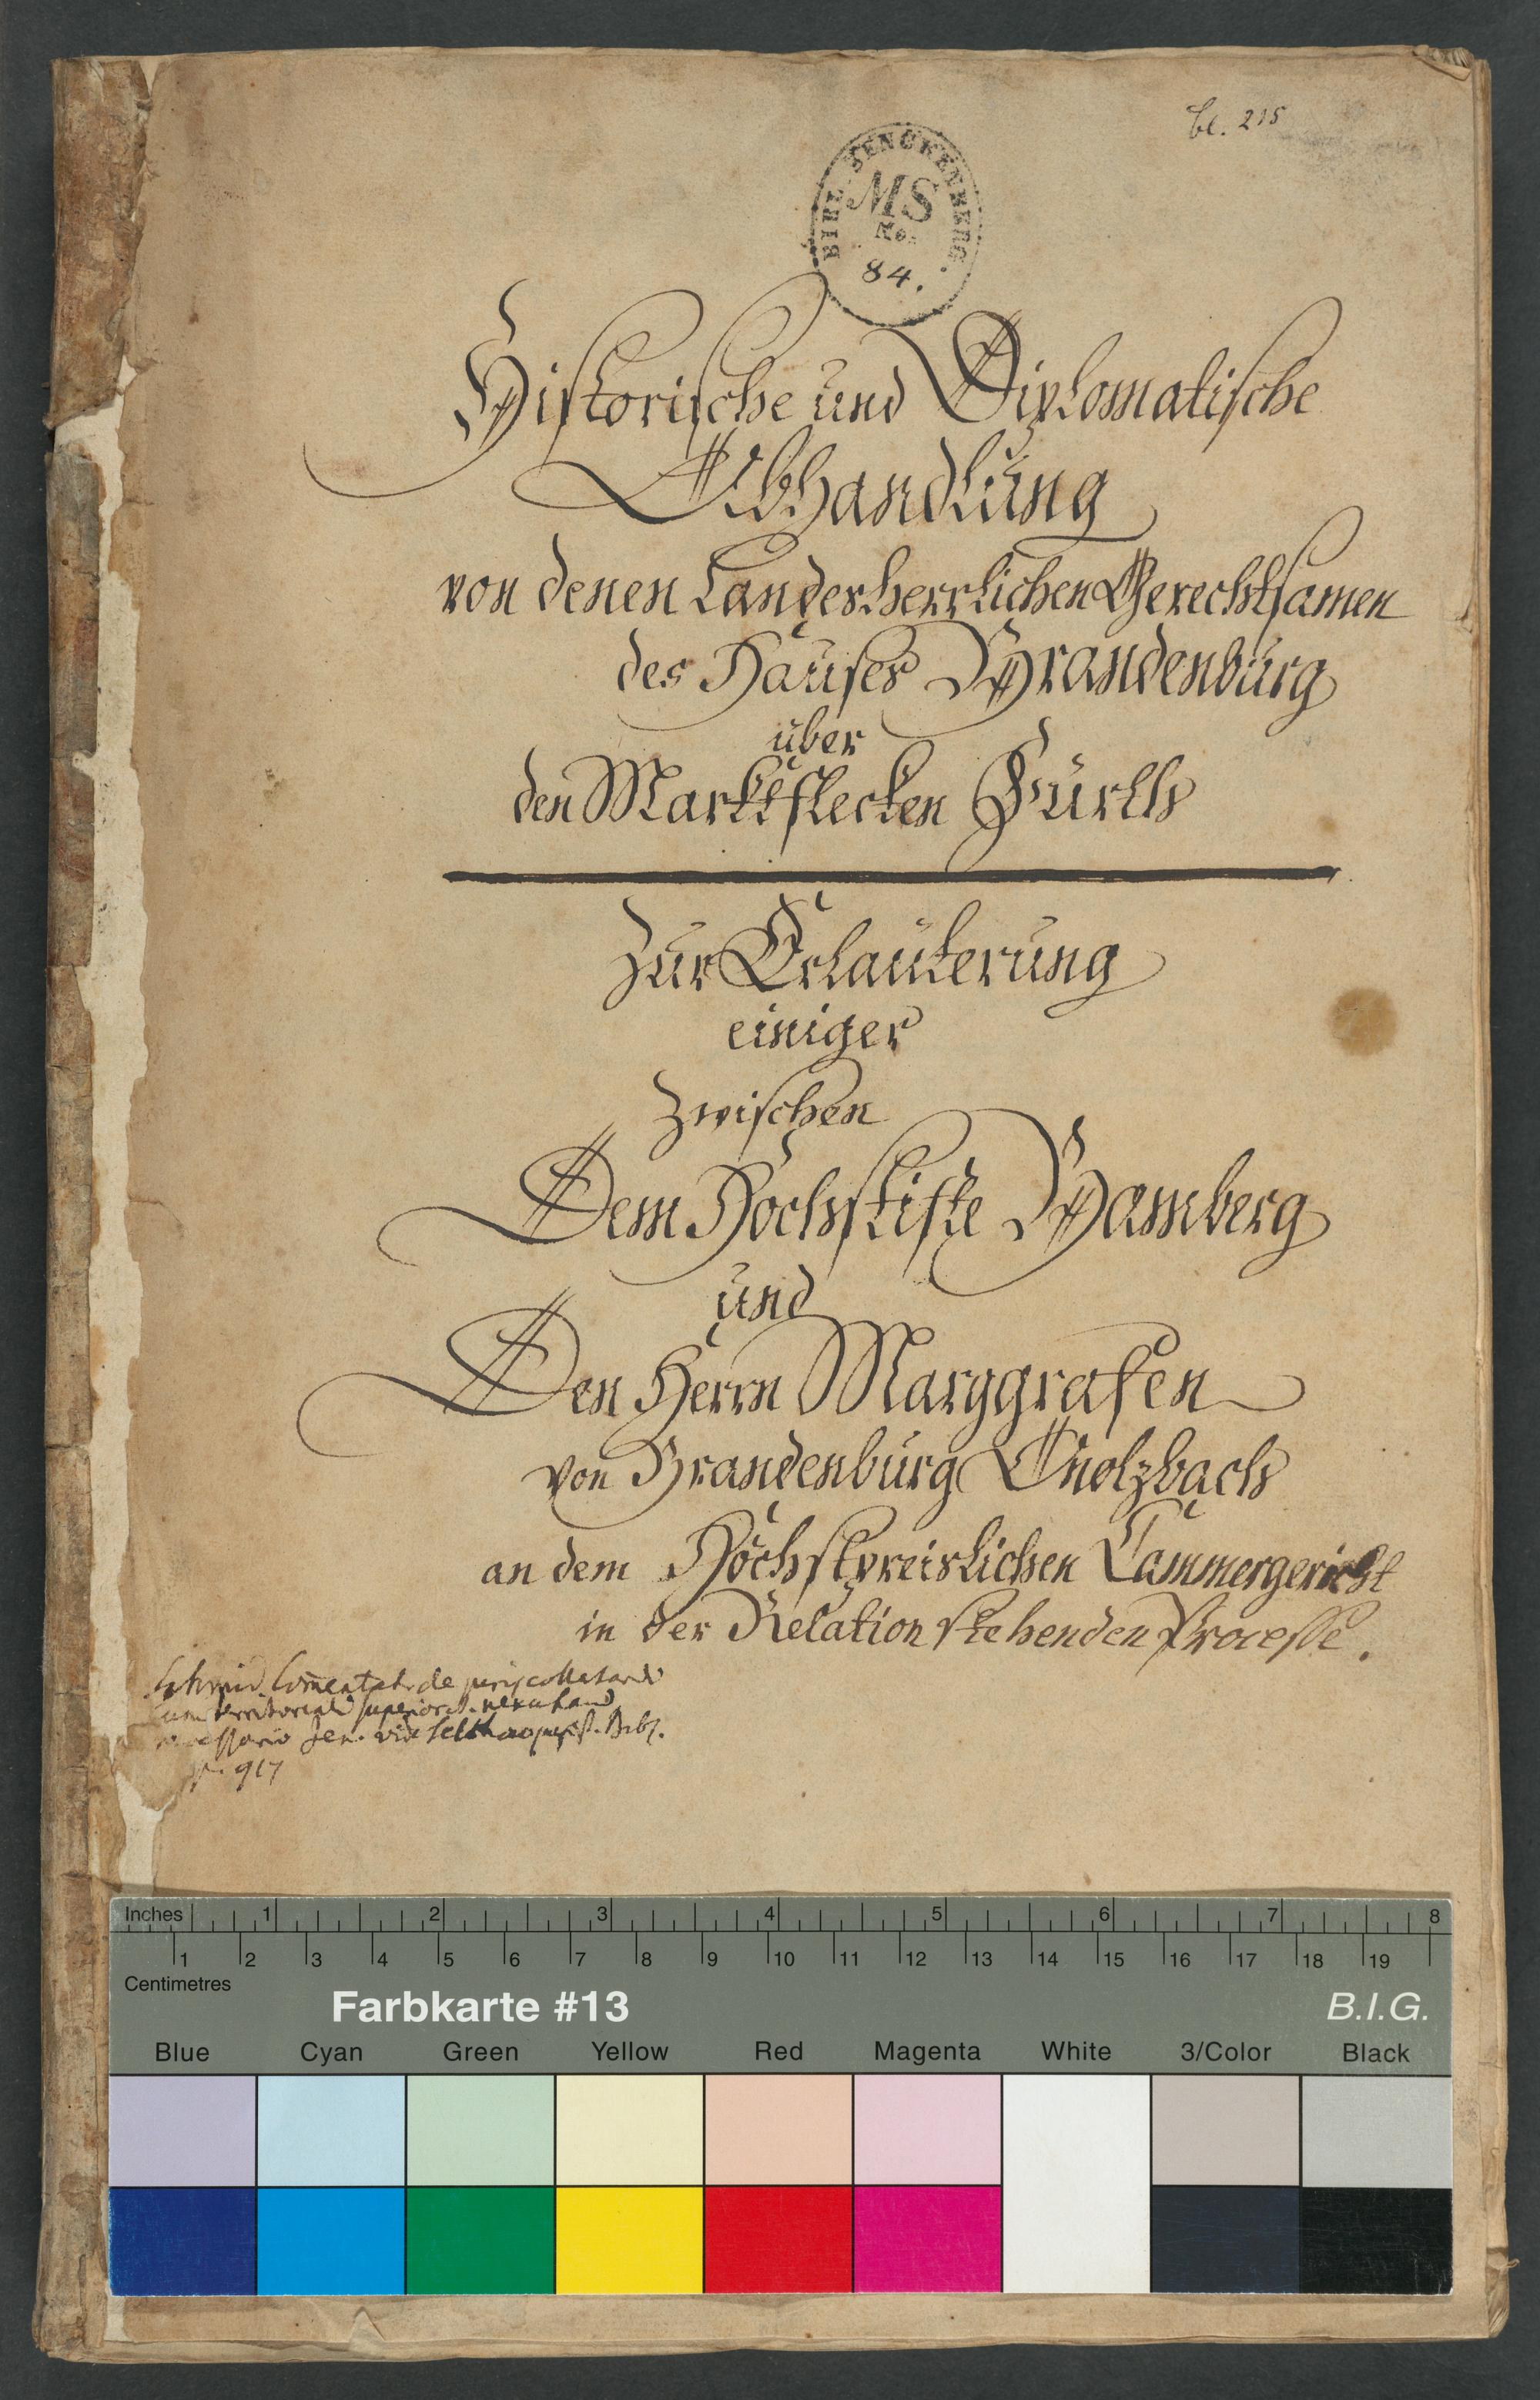 bl. 215
BIBL. SENCKENBERG.
MS
No.
84.
Historische und Diplomatische
Abhandlung
von denen Landesherrlichen Gerechtsamen
des Hauses Brandenburg
über
den Marktflecken Fürth
Zur Erläuterung
einiger
zwischen
Dem Hochstifte Bamberg
und
Den Herrn Marggrafen
von Brandenburg Onolzbach
an dem Höchstpreislichen Cammergericht
in der Relation stehenden Processe.
Schmid Comentat. de juris collectandi
cum territoriali superiorit. nexu haud
necessario Jen. vid. jurist. Bibl.
p. 917
Inches 1 2 3 4 5 6 7 8
1 2 3 4 5 6 7 8 9 10 11 12 13 14 15 16 17 18 19
Centimetres
Farbkarte #13 B.I.G.
Blue Cyan Green Yellow Red Magenta White 3/Color Black